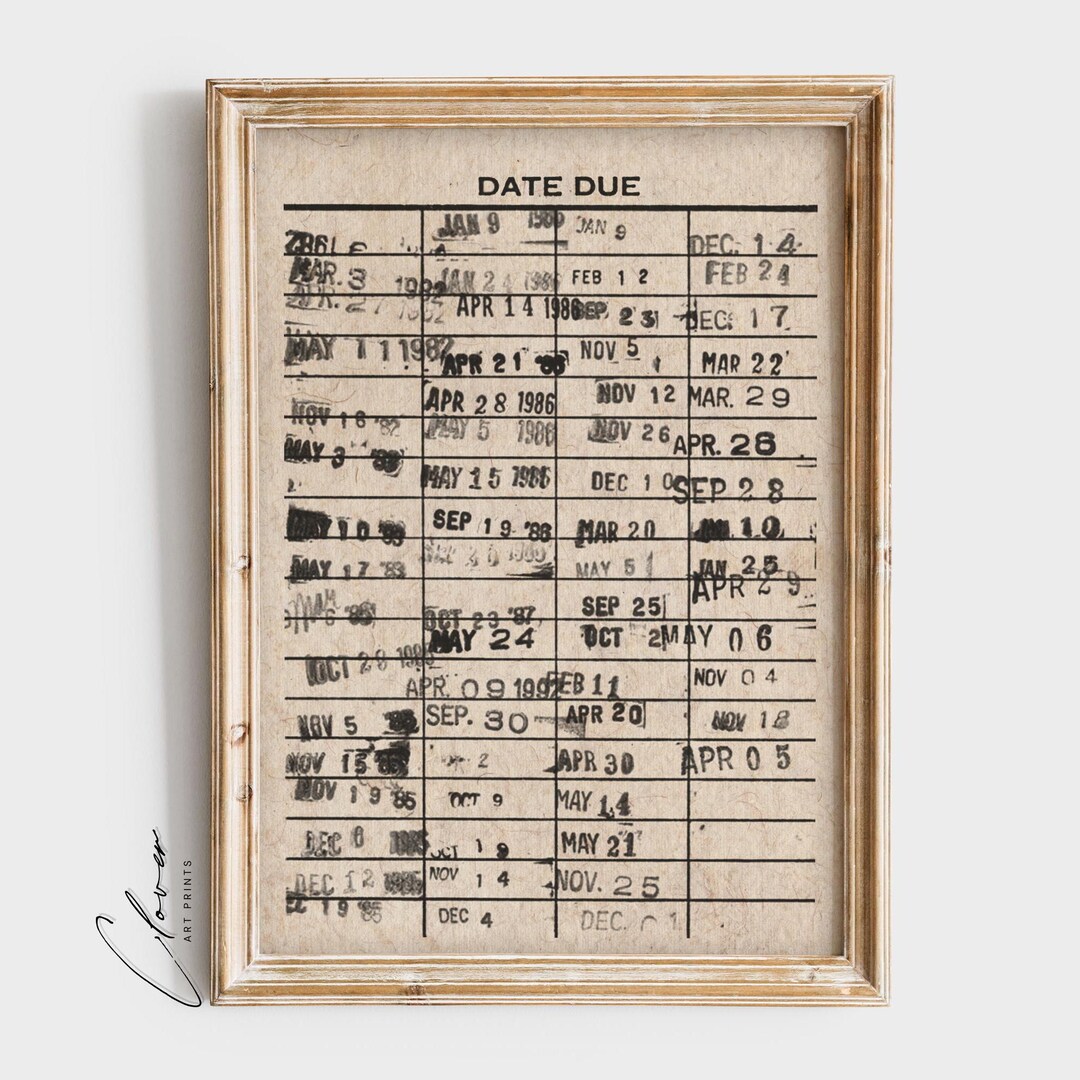 DATE DUE
MAR. 3 1982
APR. 27 1982
MAY 11 1982
NOV 16 '82
MAY 3 '83
MAY 10 '83
MAY 17 '83
OCT 28
NOV 5
NOV 15
NOV 19 '85
DEC 6 1985
DEC 12 1985
19 '85
JAN 9 1986
JAN 24 1986
APR 14 1986
APR 21 '86
APR 28 1986
MAY 5 1986
MAY 15 1986
SEP 19 '86
OCT 23 '87
MAY 24
APR. 09 1992
SEP. 30
2
OCT 9
OCT 19
NOV 14
DEC 4
JAN 9
FEB 12
SEP. 23
NOV 5
NOV 12
NOV 26
DEC 10
MAR 20
MAY 5
SEP 25
OCT 2
FEB 11
APR 20
APR 30
MAY 14
MAY 21
NOV. 25
DEC. 1
DEC. 14
FEB 24
DEC. 17
MAR 22
MAR. 29
APR. 26
SEP 28
JAN 10
JAN 25
APR 29
MAY 06
NOV 04
NOV 18
APR 05
Clover
ART PRINTS